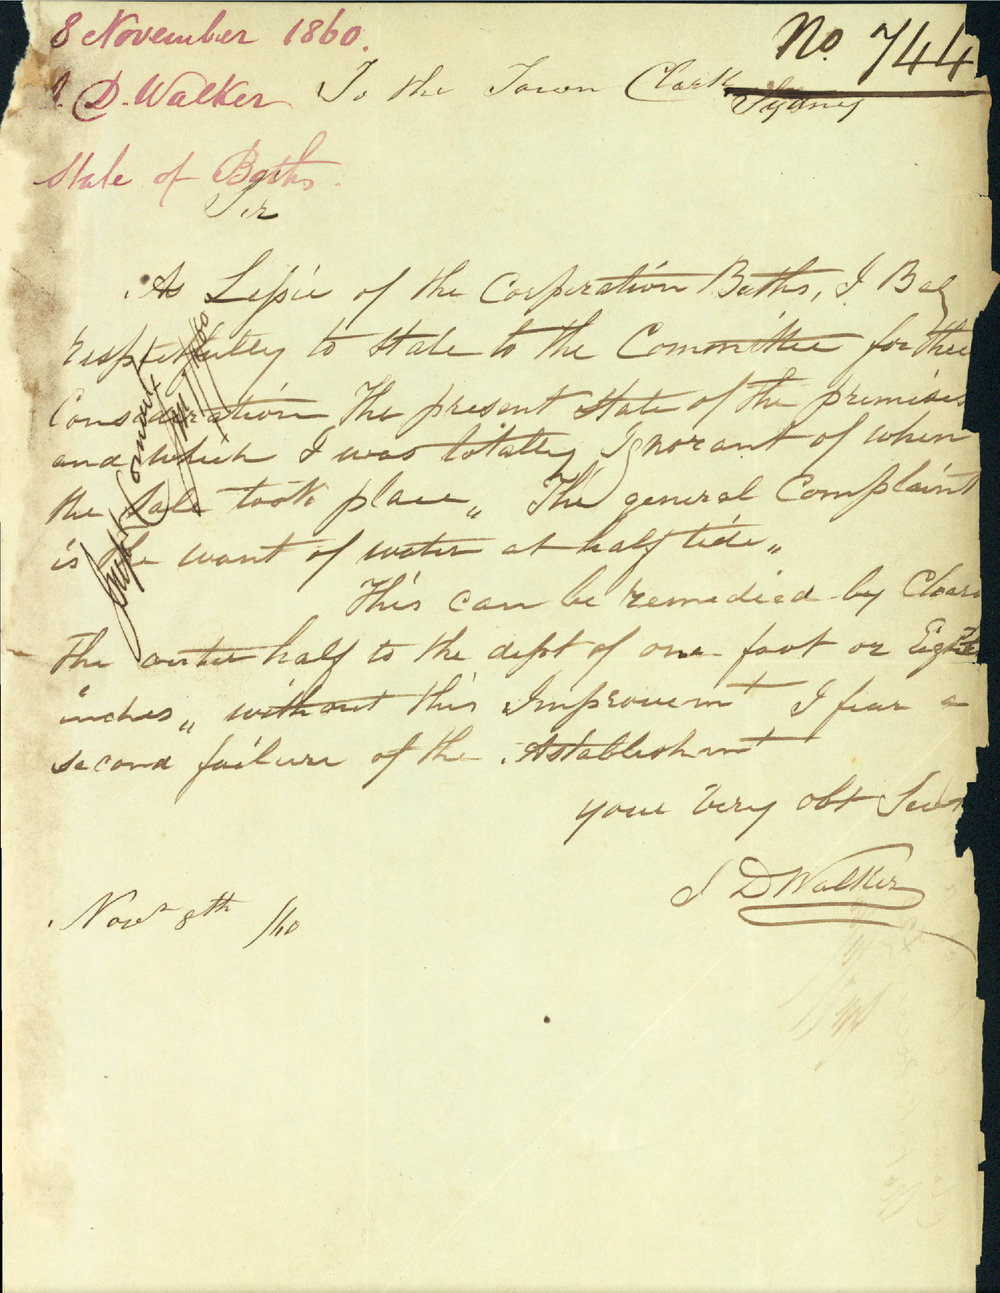 8 November 1860.
No. 744
J. D. Walker
To the Town Clerk
Sydney
State of Baths.
Sir
As Lessie of the Corporation Baths, I Beg
respectfully to state to the Committee for thee
Consideration The present state of the premises
and which I was totally Ignorant of when
the Sale took place „ The general Complaint
is the want of water at half tide „
This can be remedied by Clear
The outer half to the dept of one foot or Eighte
inches „ without this Improvemt I fear a
second failure of the Establishmt
your Very obt Servt
J D Walker
Novr 8th /60